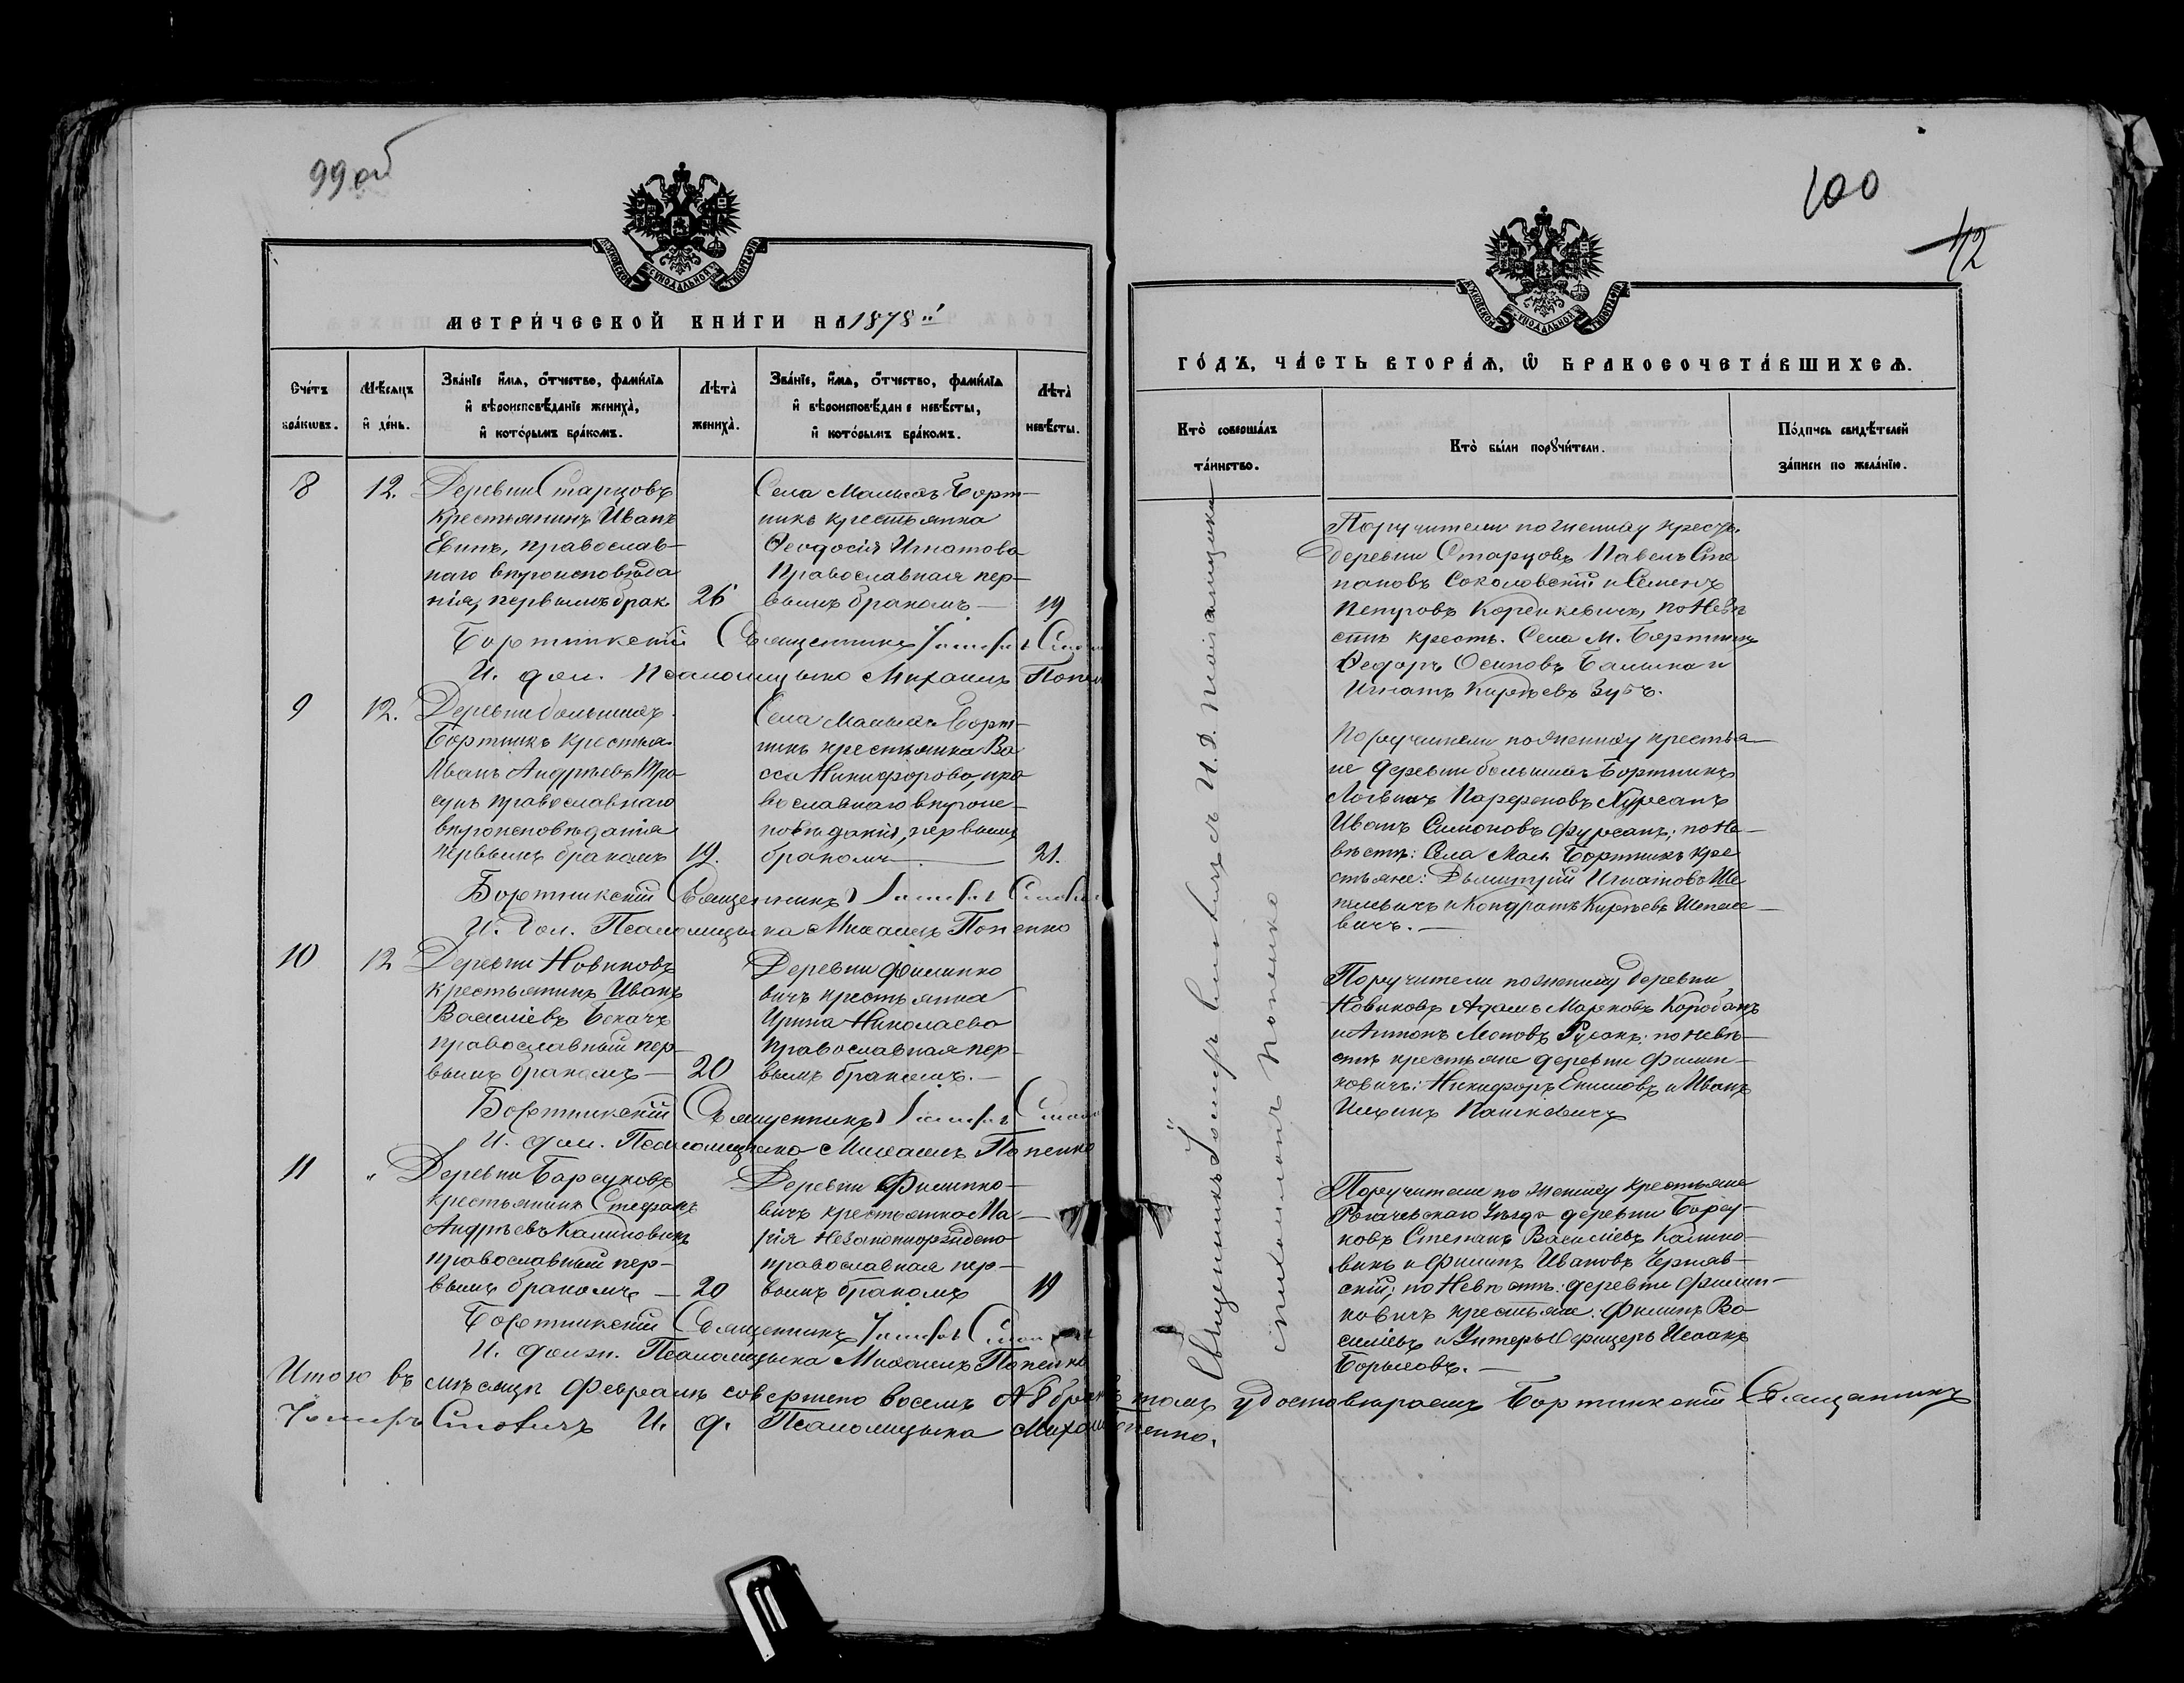 99 об
МЕТРИ́ЧЕСКОЙ КНИ́ГИ НА 1878 й
Сче́тъ бра́кωвъ.
Мѣ́сяцъ и҆ де́нь.
Зва́нїе и҆́мѧ, ѻ҆́тчество, фамѝлїа и҆ вѣроисповѣ́данїе жениха̀, и҆ кото́рымъ бра́комъ.
Лѣта̀ жениха̀.
Зва́нїе, и҆́мѧ, ѻ҆́тчество, фамѝлїа и҆ вѣроисповѣ́данїе невѣ́сты, и҆ кото́рымъ бра́комъ.
Лѣта̀ невѣ́сты.
8
12.
Деревни Старцовъ
Крестьянинъ Иванъ
православ-
наго вѣроисповѣда
нія, первымъ брак.
26
Села Малыхъ Борт-
никъ крестьянка
Ѳеодосія Игнатова
Православная пер-
вымъ бракомъ —
19
Бортникскій Священникъ Іосифъ
И. дол. Псаломщика Михаилъ Попен
9
12.
Деревни большихъ
Бортникъ крестья
Иванъ Андреевъ
православнаго
вѣроисповѣданія
первымъ бракомъ
19.
Села Малыхъ Борт-
никъ крестьянка Ва
сса Никифорова, пра
вославнаго вѣроис-
повѣданія, первымъ
бракомъ —
21.
Бортникскій Священникъ Іосифъ
И. дол. Псаломщика Михаилъ Попенко
10
12
Деревни Новиковъ
крестьянинъ Иванъ
Василіевъ
православный пер-
вымъ бракомъ —
20
Деревни Филипко
вичъ крестьянка
Ирина Николаева
православная пер-
вымъ бракомъ. —
Бортникскій Священникъ Іосифъ
И. дол. Псаломщика Михаилъ Попенко
11
"
Деревни Барсуковъ
крестьянинъ Стефанъ
Андреевъ Калиновикъ
православный пер-
вымъ бракомъ —
20
Деревни Филипко-
вичъ крестьянка Ма-
рія Незаконнорождено
православная пер-
вымъ бракомъ
19
Бортникскій Священникъ Іосифъ
И. должн. Псаломщика Михаилъ Попенко
Итого въ мѣсяцѣ Февралѣ совершено восемь № 8 брак въ томъ удостовѣряемъ Бортникскій Священникъ
Іосифъ И. д. Псаломщика Михаилъ Попенко.
100
12
ГО́ДЪ, ЧА́СТЬ ВТОРА́Ѧ, Ѽ БРАКОСОЧЕТА́ВШИХСѦ.
Кто̀ соверша́лъ та́инство.
Кто̀ бы́ли порꙋчи́тели.
По́дпись свидѣ́телей за́писи по жела́нїю.
Священникъ Іосифъ И. д. Псаломщика
Попенко
Поручители по жениху крестъ.
деревни Старцовъ Павелъ Сте
пановъ Соколовскій и Семенъ
Петровъ Корбикевичъ, по Невѣ
стѣ крестъ. Села М. Бортникъ
Ѳедоръ Осиповъ и
Игнатъ Кирѣевъ Зубъ.
Поручители по жениху крестья-
не деревни большихъ Бортникъ
Парфеновъ
Иванъ Симоновъ; по Не-
вѣстѣ: Села Мал. Бортникъ кре
стьяне: Дьмитрій Игнатовъ Ше
пелевичъ и Кондратъ Кирѣевъ Шепеле-
вичъ. —
Поручители по жениху деревни
Новиковъ Адамъ Марковъ
и Антонъ Русакъ; по невѣ-
стѣ крестьяне деревни Филип-
ковичъ: Никифоръ и Иванъ
Пашкевичъ
Поручители по жениху крестьяне
Рогачевскаго Уѣзда деревни Барсу-
ковъ Степанъ Василіевъ Калино-
викъ и Филипъ Ивановъ Черняв-
скій; по Невѣстѣ: деревни Филип-
ковичъ крестьяне: Филипъ Ва-
силіевъ и Унтеръ Офицеръ Исаакъ
Борисовъ. —